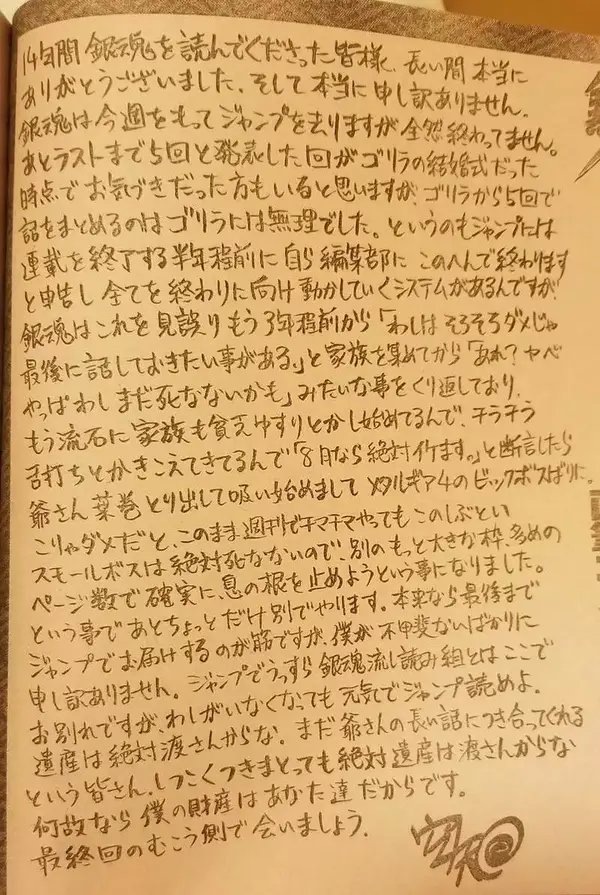 14年間 銀魂を読んでくださった皆様、長い間 本当に
ありがとうございました。そして本当に申し訳ありません。
銀魂は今週をもってジャンプを去りますが全然終わってません。
あとラストまで5回と発表した回がゴリラの結婚式だった
時点でお気づきだった方もいると思いますが、ゴリラから5回で
話をまとめるのはゴリラには無理でした。というのもジャンプには
連載を終了する半年程前に自ら編集部に このへんで終わります
と申告し 全てを終わりに向け動かしていくシステムがあるんですが
銀魂はこれを見誤り もう3年程前から「わしは そろそろダメじゃ
最後に話しておきたい事がある。」と家族を集めてから「あれ?ヤベ
やっぱわし まだ死なないかも」みたいな事をくり返しており、
もう流石に家族も貧乏ゆすりとかし始めてるんで、チラチラ
舌打ちとかきこえてきてるんで「8月なら絶対イケます。」と断言したら
爺さん葉巻とり出して吸い始めまして メタルギア4のビックボスばりに。
こりゃダメだと、このまま週刊でチマチマやってもこのしぶとい
スモールボスは絶対死なないので、別のもっと大きな枠、多めの
ページ数で確実に、息の根を止めようという事になりました。
という事であとちょっとだけ別でやります。本来なら最後まで
ジャンプでお届けするのが筋ですが、僕が不甲斐ないばかりに
申し訳ありません。ジャンプでうっすら銀魂流し読み組とはここで
お別れですが、わしがいなくなっても元気でジャンプ読めよ。
遺産は絶対渡さんからな。まだ爺さんの長い話につき合ってくれる
という皆さん、しつこくつきまとっても絶対遺産は渡さんからな
何故なら僕の財産はあなた達だからです。
最終回のむこう側で会いましょう。